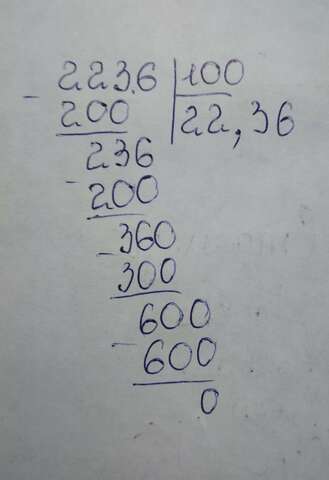 2236 100
- 200 22,36
236
- 200
360
- 300
600
- 600
0